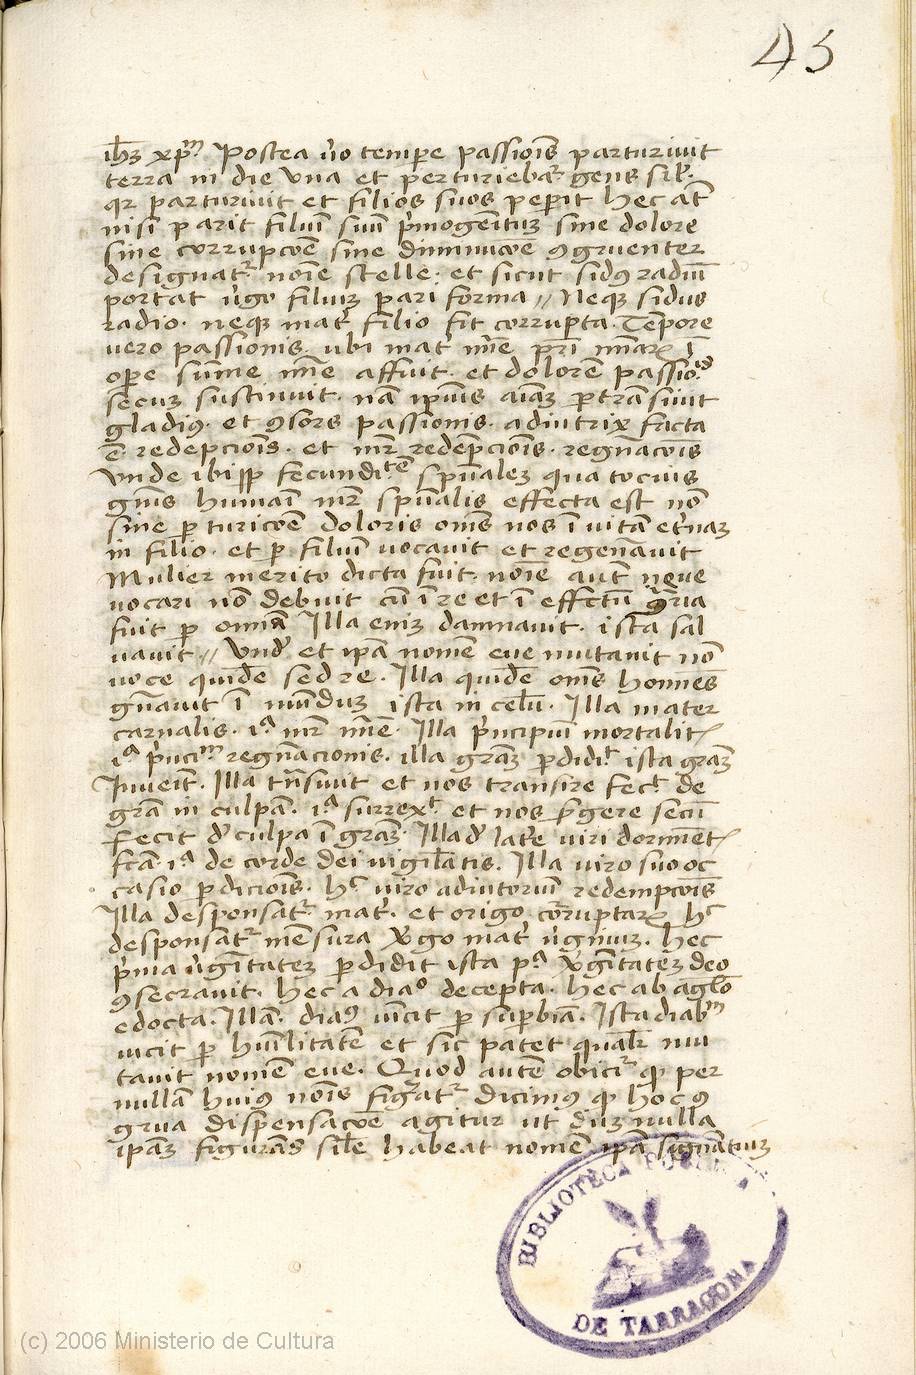 45
ihm xpm. Postea uo tempe passiois parturiuit
terra in die vna et perturiebar gens sil.
qr parturiuit et filios suos peperit hec at
nisi parit filiu suu pmogeitum sine dolore
sine corrupcoe sine diminucoe 9gruenter
designatr noie stelle. et sicut sid9 radiu
portat ugo filium pari forma // Neq sidus
radio. neq mat filio fit corrupta. Tempore
vero passionis. ubi mat me pri mar i
ope sume me affuit. et dolore passiois
secum sustinuit. na ipius aiam ptransiuit
gladi9. et 9sors passionis. adiutrix facta
e. redepciois. et mr redempciois. regnacois
vnde ibi fecundite spualem qua tocius
gnis humai mr spualis effecta est no
sine pturicoe doloris oms nos i vita etnam
in filio. et p filiu uocauit et regenauit
Mulier merito dicta fuit. noie aut neue
uocari no debuit cu i re et i effctu 9ria
fuit p omnia Illa enim damnauit. ista sal
uauit // Vnd et ipa nomen eue mutauit no
uoce quide sed re. Illa quide oms homines
gnauit i mundum ista in celu. Illa mater
carnalis. ia mr me. Illa pncipiu mortalit
ia pncim regnacionis. illa gram pdidit ista gram
Inueit. Illa tnsiuit et nos transire fect de
gra in culpa. ia surrext et nos sgere secu
fecit d culpa i gram. Illa d latre viri dormiet
fca. ia de corde dei uigilatis. Illa viro suo oc
casio pdiciois. hc viro adiutoriu redempcois
Illa despensatr mat. et origo corruptar hc
desponsatr mesura vgo mat ugnium. hec
pma ugitatem pdidit ista pa vgitatem deo
9secrauit. hec a diao decepta. hec ab aglo
edocta. Illa. dia9 uicit p supbia. Ista diabm
uicit p humilitate et sic patet qualr mu
tauit nome eue. Quod aute obicir q per
nulla huius nois figatr dicim9 q hoc 9
grua dispensacoe agitur ut dum nulla
ipam figurans sile habeat nomen ipa signatium
BIBLIOTECA PUBLICA
DE TARRAGONA
(c) 2006 Ministerio de Cultura